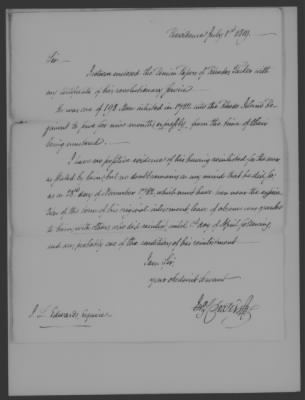 Providence July 1st 1819.
Sir.
I return enclosed the Pension Papers of with
my certificate of his revolutionary service
He was one of 198 Men enlisted in 1782 into the Rhode Island Re-
giment to serve for nine months expressly, from the time of their
being mustered.
I have no positive evidence of his having reenlisted for the war
as stated by him, but no doubt remains in my mind that he did, for
as on 28th day of November 1782 which must have been near the expira-
tion of the term of his original inlistment, leave of absence was granted
to him, with others who did reenlist, until 1st day of April following
and was probably one of the conditions of his reinlistment.
I am Sir,
your obedient servant
J. L. Edwards, Esquire